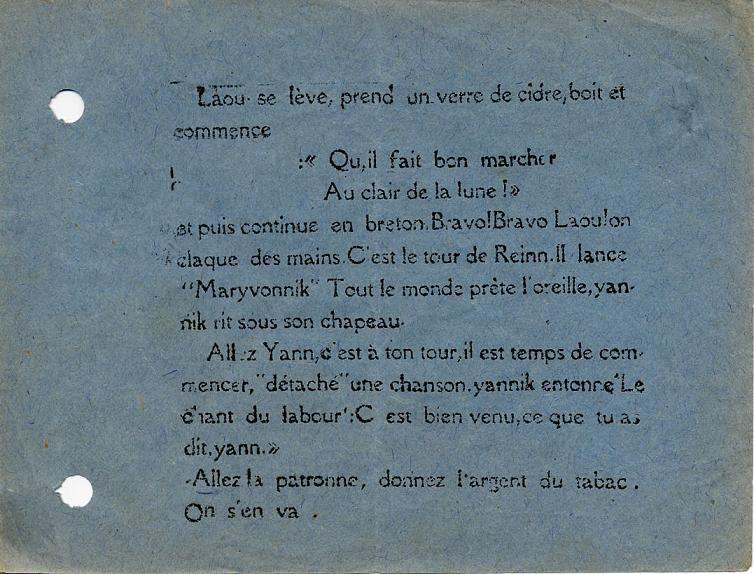 Laou se lève, prend un verre de cidre,boit et
commence
:« Qu,il fait bon marcher
Au clair de la lune !»
et puis continue en breton.Bravo!Bravo Laou!on
claque des mains.C'est le tour de Reinn.Il lance
"Maryvonnik" Tout le monde prête l'oreille,yan-
nik rit sous son chapeau.
Allez Yann,c'est à ton tour,il est temps de com-
mencer,"détaché"une chanson.yannik entonne"Le
chant du labour":C est bien venu,ce que tu as
dit,yann.»
-Allez la patronne, donnez l'argent du tabac .
On s'en va .